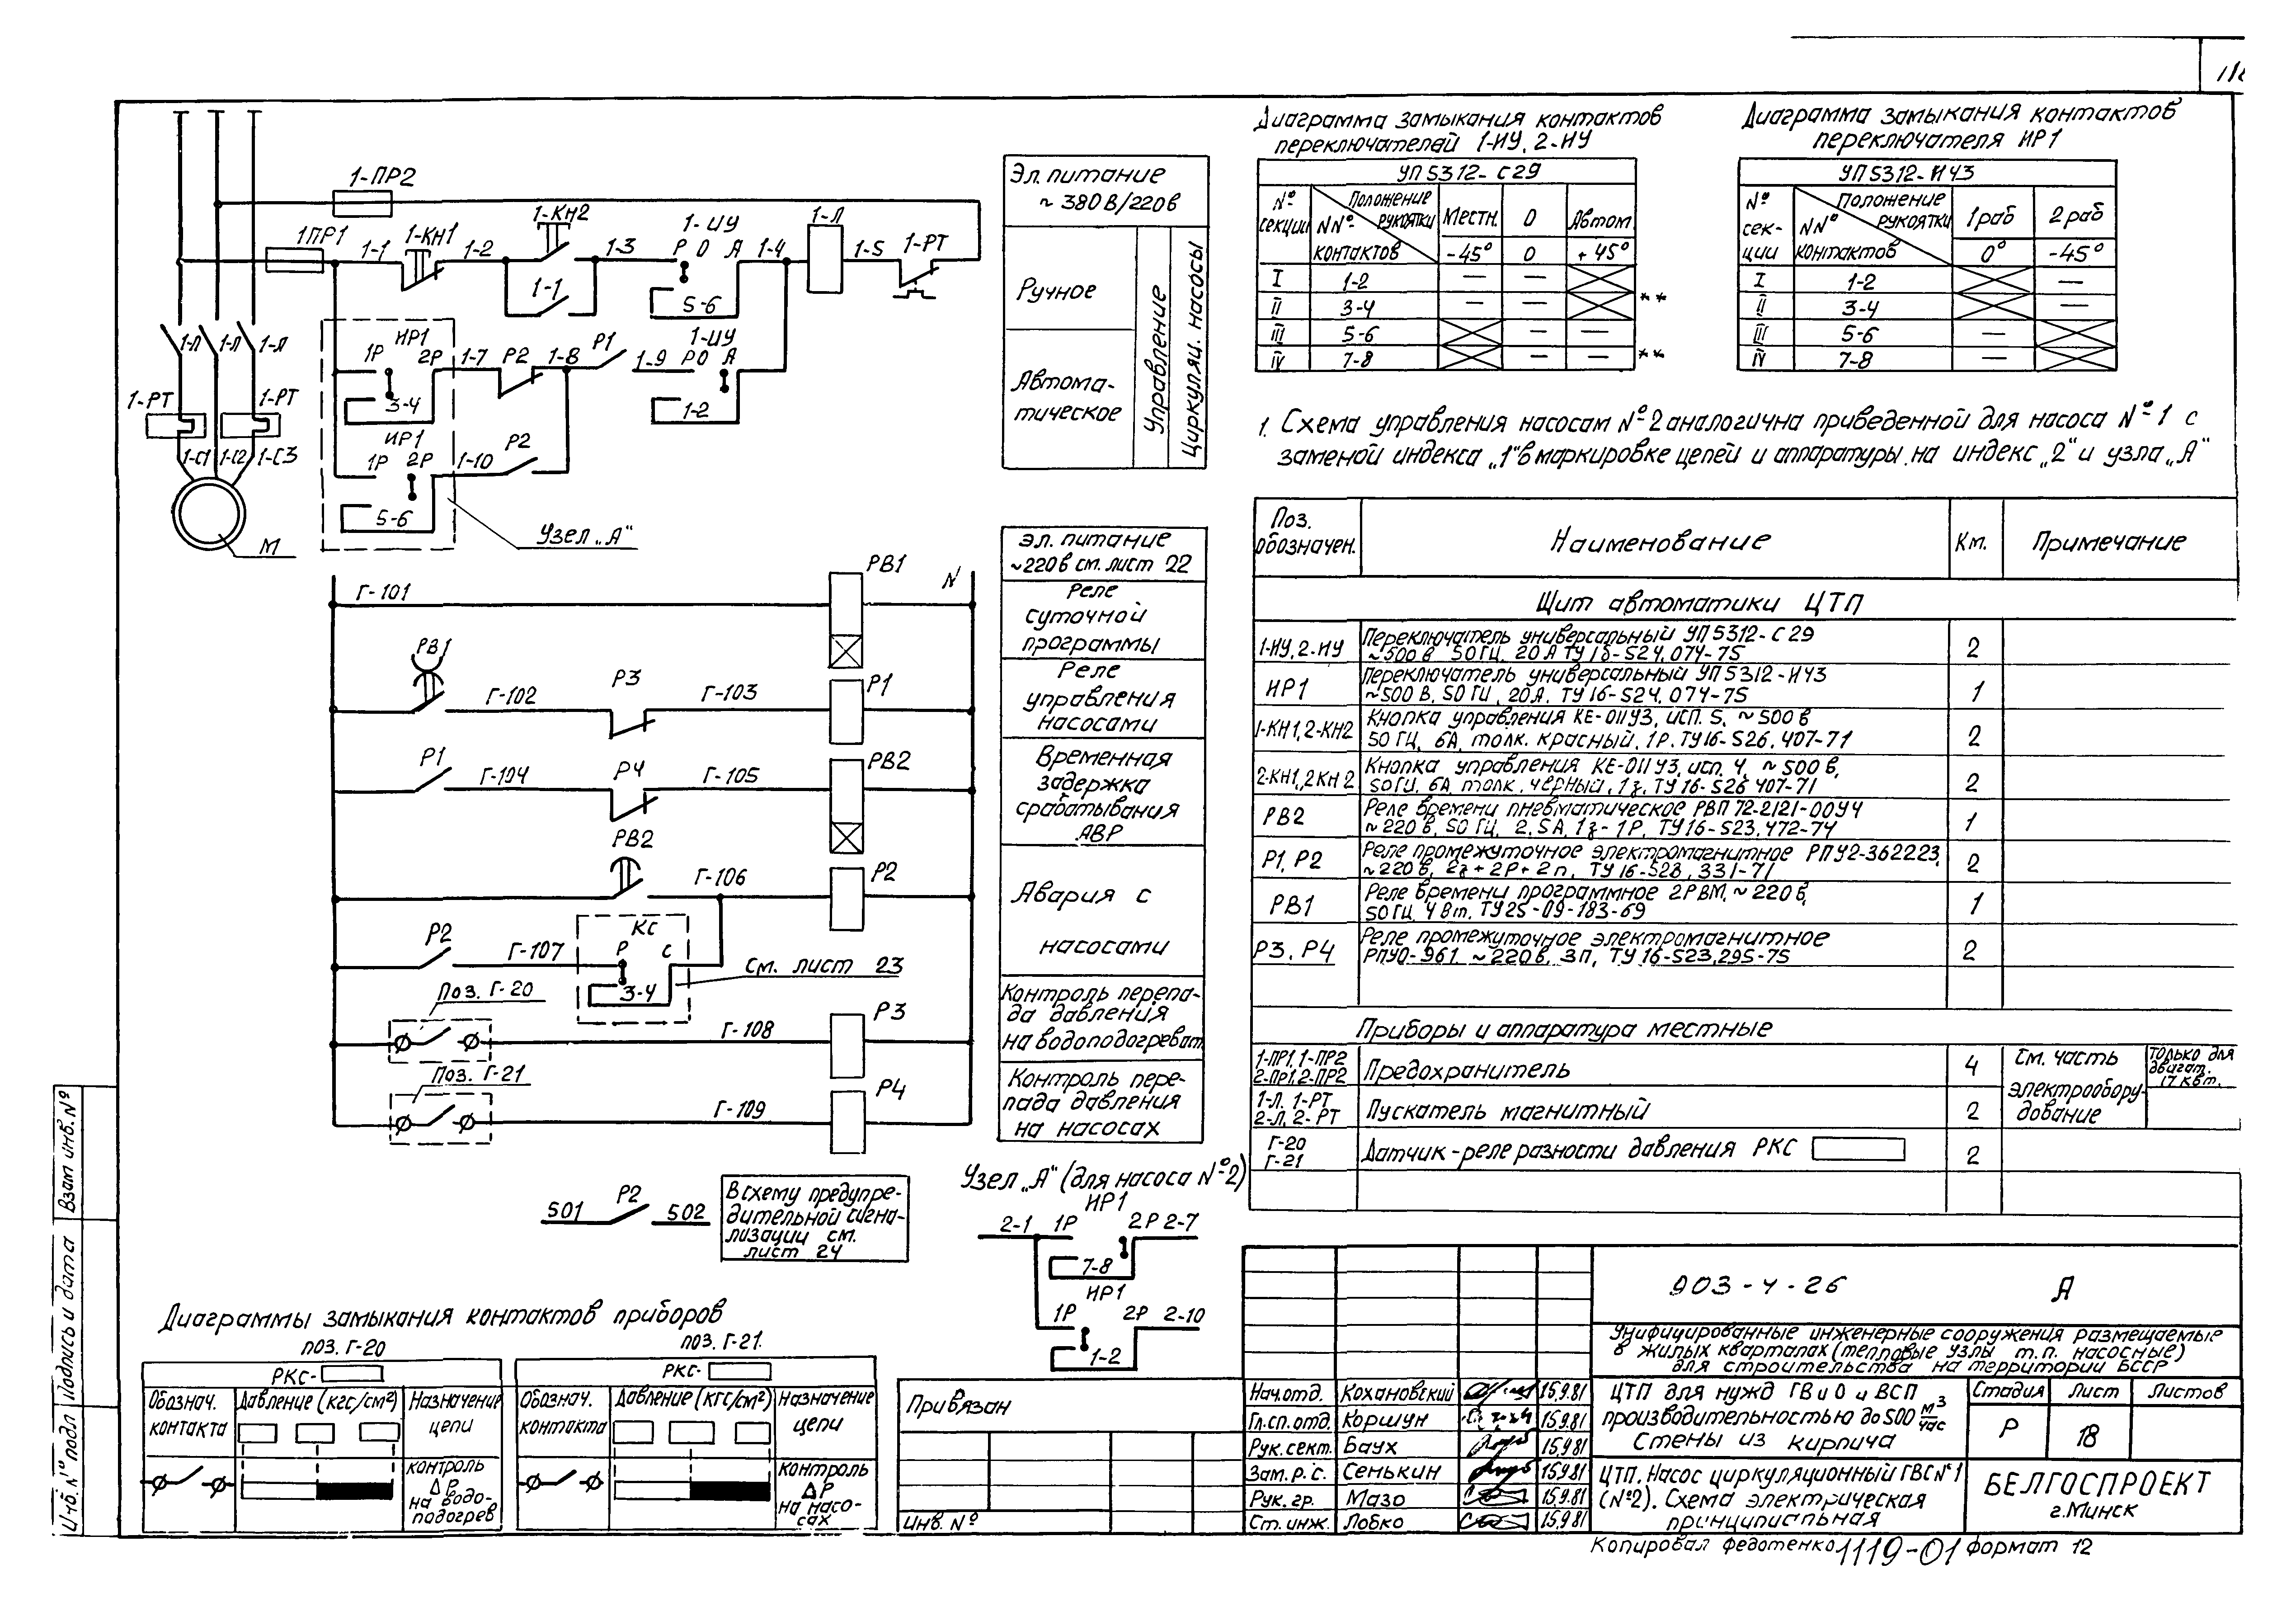 118
Диаграмма замыкания контактов
переключателей 1-ИУ, 2-ИУ
УП 5312- С29
№ секции
Положение рукоятки
NN° контактов
Местн. 0 Автом
-45° 0 +45°
I 1-2 — —
II 3-4 — — **
III 5-6 — —
IV 7-8 — — **
Диаграмма замыкания контактов
переключателя ИР1
УП5312-И43
№ секции
Положение рукоятки
NN° контактов
1раб 2раб
0° -45°
I 1-2 —
II 3-4 —
III 5-6 —
IV 7-8 —
1. Схема управления насосам №2 аналогична приведенной для насоса №1 с
заменой индекса „1" в маркировке цепей и аппаратуры на индекс „2" и узла „А"
1-ПР2
1ПР1
1-1
1-КН1
1-2
1-КН2
1-1
1-3
1-ИУ
Р О А
5-6
1-4
1-Л
1-5
1-РТ
1-Л 1-Л 1-Л
ИР1
1Р 2Р
3-4
1-7
Р2
1-8
Р1
1-9
1-ИУ
РО А
1-2
1-РТ
1-РТ
1-С1 1-С2 1-С3
ИР1
1Р 2Р
5-6
1-10
Р2
М
Узел „А"
Эл. питание
~ 380В/220в
Ручное
Автома-
тическое
Управление
Циркуляц. насосы
Г-101
РВ1
N
РВ1
Г-102
Р3
Г-103
Р1
Р1
Г-104
Р4
Г-105
РВ2
РВ2
Г-106
Р2
Р2
Г-107
КС
Р С
3-4
См. лист 23
Поз. Г-20
Г-108
Р3
Поз. Г-21
Г-109
Р4
эл. питание
~220в см. лист 22
Реле
суточной
программы
Реле
управления
насосами
Временная
задержка
срабатывания
АВР
Авария с
насосами
Контроль перепа-
да давления
на водоподогреват
Контроль пере-
пада давления
на насосах
501 Р2 502
В схему предупре-
дительной сигна-
лизации см.
лист 24
Узел „А" (для насоса №2)
ИР1
2-1 1Р 2Р 2-7
7-8
ИР1
1Р 2Р 2-10
1-2
Поз. обозначен. Наименование Кт. Примечание
Щит автоматики ЦТП
1-ИУ, 2-ИУ Переключатель универсальный УП5312-С29 2
~500в 50ГЦ, 20А ТУ16-524.074-75
ИР1 Переключатель универсальный УП5312-И43 1
~500 В, 50ГЦ, 20А. ТУ16-524.074-75
1-КН1, 2-КН2 Кнопка управления КЕ-011У3, исп. 5, ~500в 2
50 ГЦ, 6А, толк. красный, 1Р. ТУ16-526.407-71
2-КН1, 2КН2 Кнопка управления КЕ-011У3, исп. 4, ~500в, 2
50ГЦ, 6А, толк. черный, 1з, ТУ16-526 407-71
РВ2 Реле времени пневматическое РВП72-2121-00У4 1
~220в, 50ГЦ, 2,5А, 1з-1Р, ТУ16-523.472-74
Р1, Р2 Реле промежуточное электромагнитное РПУ2-362223, 2
~220в, 2з+2Р+2п, ТУ16-523.331-71
РВ1 Реле времени программное 2РВМ, ~220в, 1
50ГЦ, 4Вт. ТУ25-09-183-69
Р3, Р4 Реле промежуточное электромагнитное 2
РПУ0-961, ~220в, 3П, ТУ16-523.295-75
Приборы и аппаратура местные
1-ПР1, 1-ПР2
2-ПР1, 2-ПР2 Предохранитель 4
1-Л, 1-РТ
2-Л, 2-РТ Пускатель магнитный 2
см. часть
электрообору-
дование
только для
двигат.
17 квт.
Г-20
Г-21 Датчик-реле разности давления РКС 2
Диаграммы замыкания контактов приборов
поз. Г-20
РКС-
Обознач. контакта
Давление (кгс/см²)
Назначение цепи
контроль
ΔР
на водо-
подогрев
поз. Г-21.
РКС-
Обознач. контакта
Давление (кгс/см²)
Назначение цепи
контроль
ΔР
на насо-
сах
Привязан
Инв. №
Взам инв. №
Подпись и дата
Инв. № подл
Нач.отд. Кохановский 15.9.81
Гл.сп.отд. Коршун 15.9.81
Рук.сект. Баух 15.9.81
Зам. р.с. Сенькин 15.9.81
Рук.гр. Мазо 15.9.81
Ст. инж. Лобко 15.9.81
903-4-26 А
Унифицированные инженерные сооружения размещаемые
в жилых кварталах (тепловые узлы т.п. насосные)
для строительства на территории БССР
ЦТП для нужд ГВ и О и ВСП
производительностью до 500 м³/час
Стены из кирпича
Стадия Лист Листов
Р 18
ЦТП. Насос циркуляционный ГВС №1
(№2). Схема электрическая
принципиальная
БЕЛГОСПРОЕКТ
г.Минск
Копировал Федотенко 1119-01 Формат 12